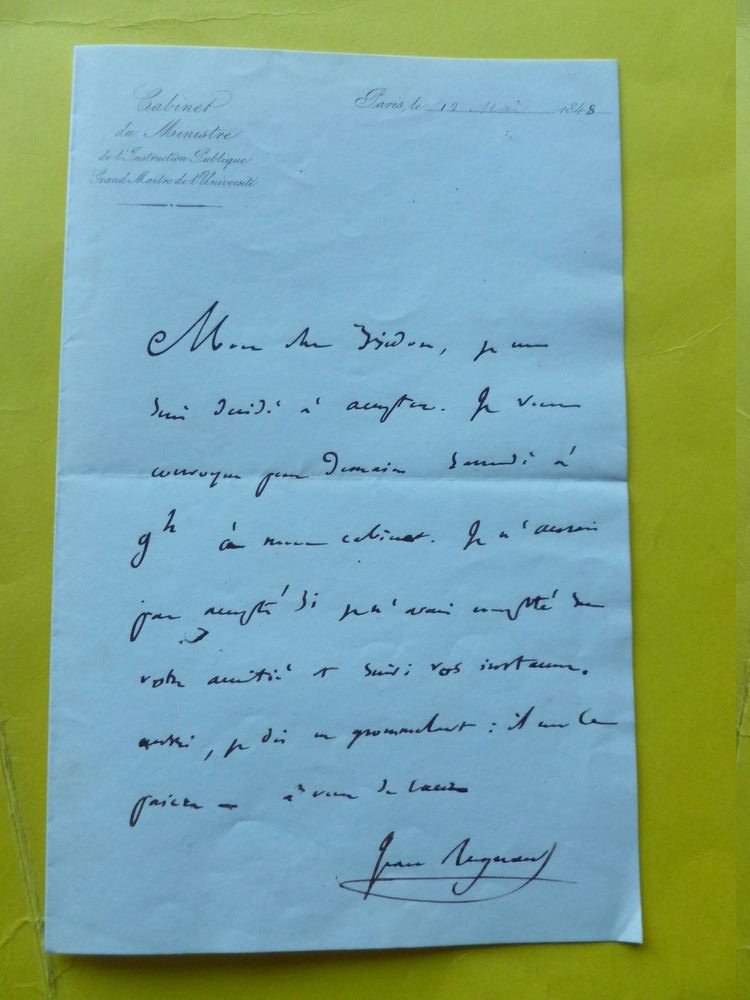 Cabinet
du Ministre
de l'Instruction Publique
Grand Maître de l'Université
Paris, le 12 Mai 1848
Mon cher Isidore, je me
suis décidé à accepter. Je vous
convoque pour Demain Samedi à
9h à mon cabinet. Je n'aurais
pas accepté si je n'avais compté sur
votre amitié et suivi vos instances.
aussi, je dis en grommelant : il me le
paiera — à vous de cœur
Jean Reynaud